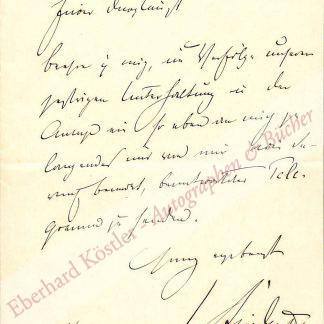 Euer Durchlaucht
beehre ich mich, im Verfolge unserer
gestrigen Unterhaltung in der
Anlage ein so eben an mich ge-
langendes und von mir
beantwortetes Tele-
gramm zu senden.
Ganz ergebenst
Eberhard Köstler - Autographen & Bücher